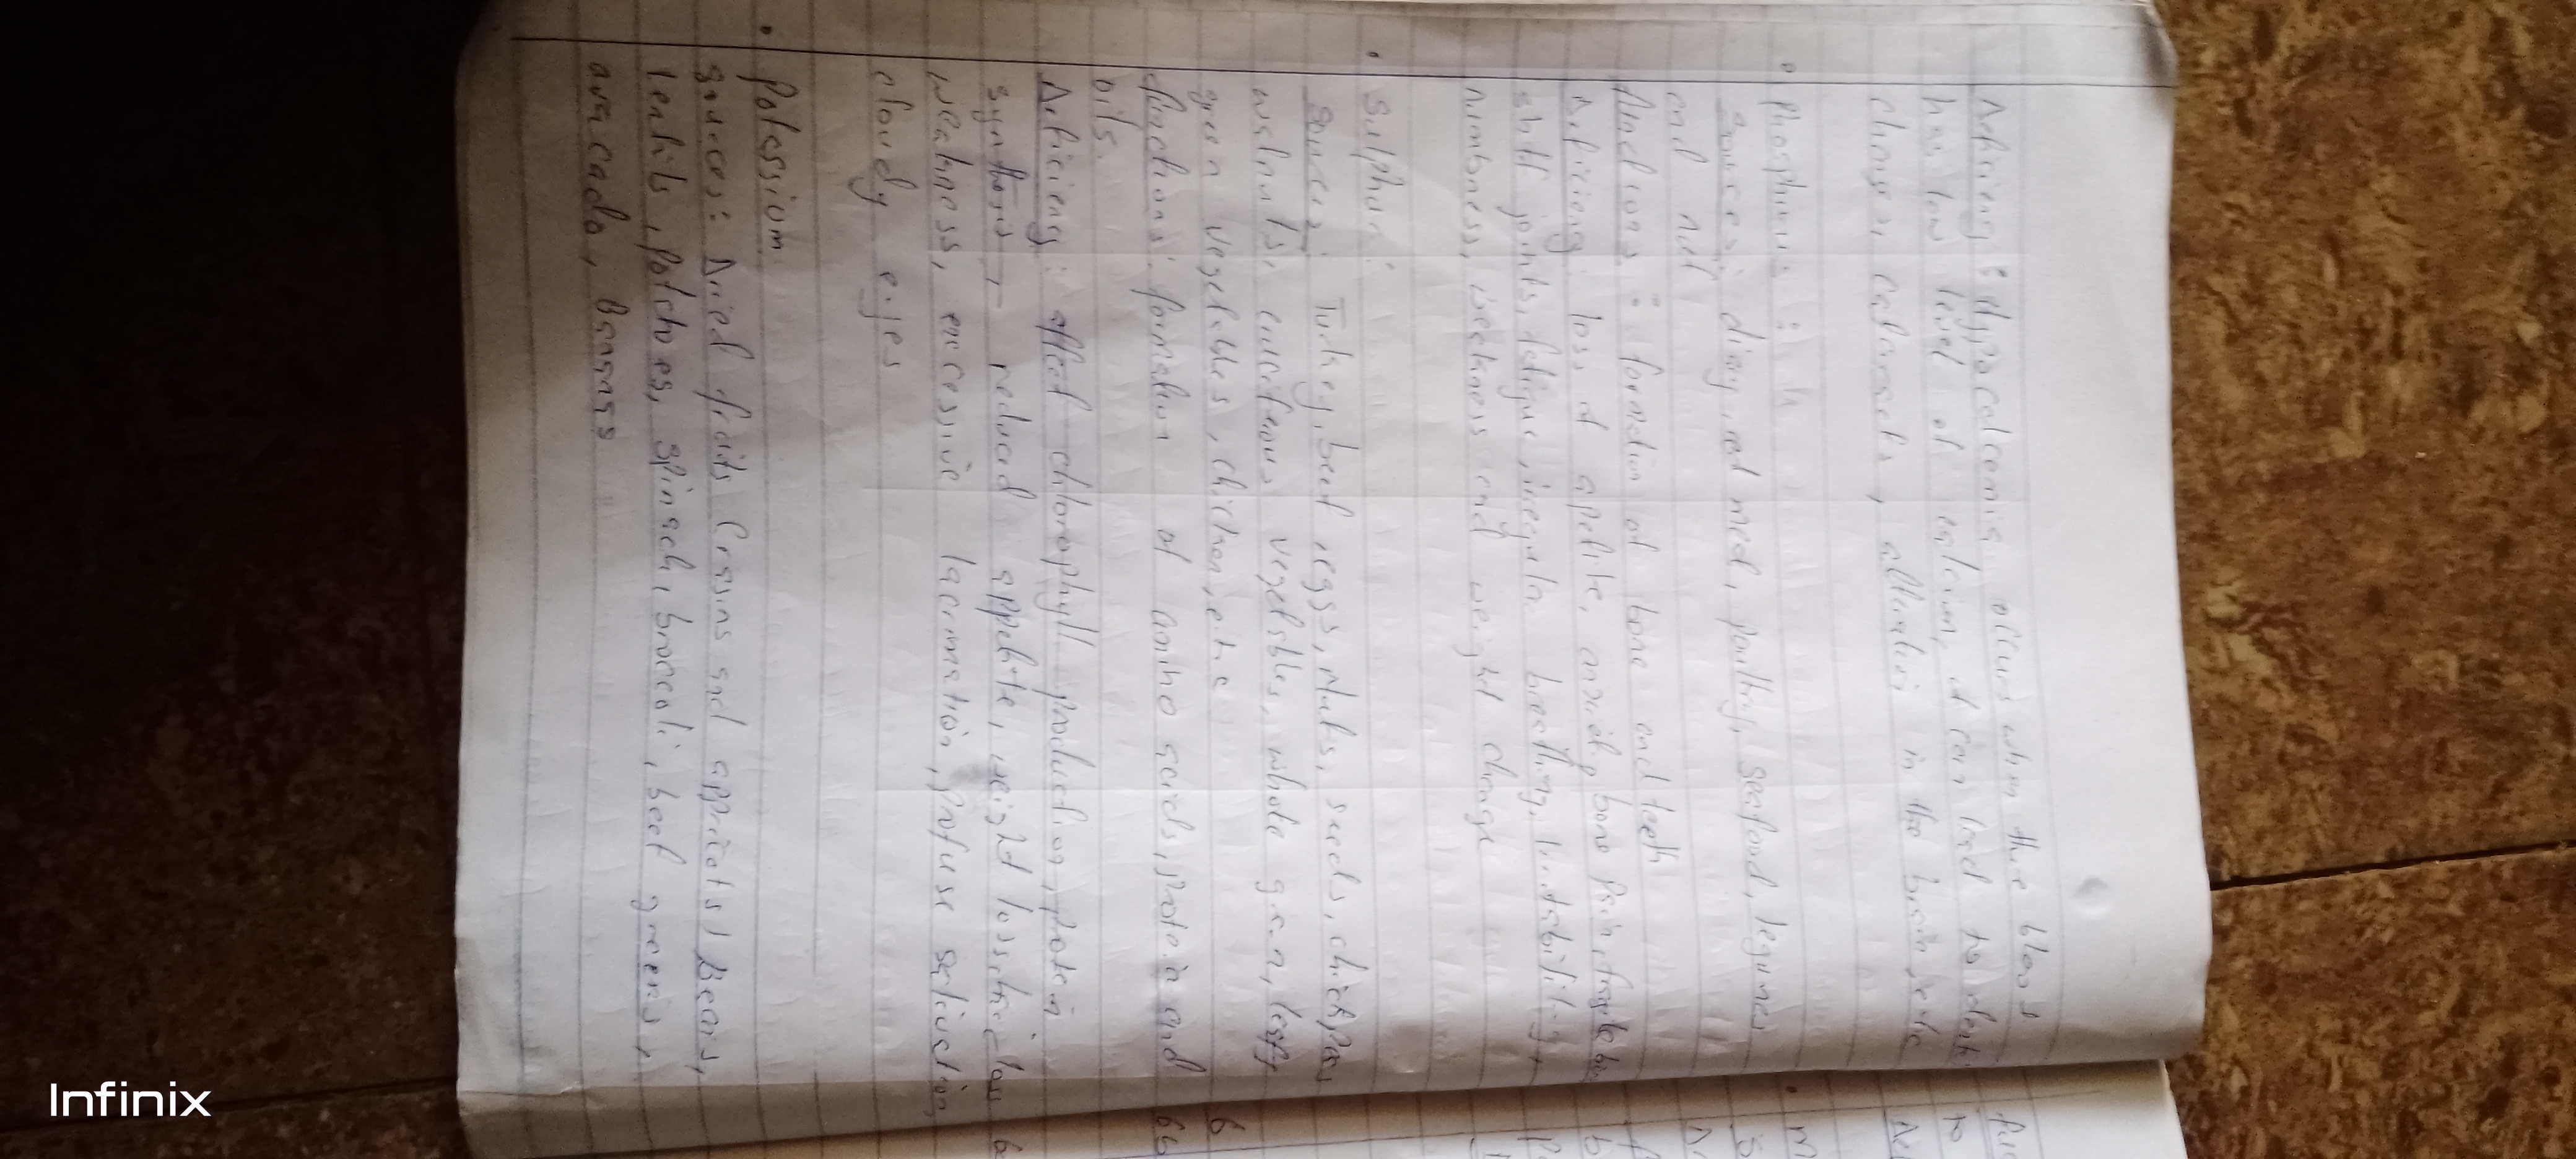 Deficiency: Hypocalcemia occurs when the blood
has low level of calcium, it can lead to dental
changes, cataracts, alteration in the brain, etc
• Phosphorus:
Sources: diary, red meat, poultry, seafood, legumes
and nut
Functions: formation of bone and teeth
Deficiency: loss of apetite, anxiety, bone pain, fragile
stiff joints, fatigue, irregular breathing, irritability,
numbness, weekness and weight change
• Sulphur:
Sources: Turkey, beef, eggs, Nuts, seeds, chickpeas
walnuts, vegetables, whole grain, leafy
green vegetables, chicken, etc
functions: formation of amino acids, protein and
oils.
Deficiency: affect chlorophyll production, protein
reduced appetite, weight loss,
weakness, excessive lacrimation, profuse salivation,
cloudy eyes
• Potassium
Sources: Dried fruits (rasins and appricots), Beans,
lentils, potatoes, spinach, broccoli, beet greens,
avacado, Bananas
6